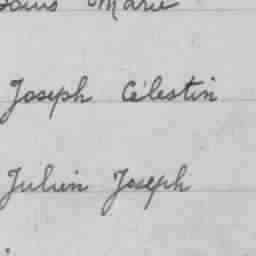 Marie
Joseph Célestin
Julien Joseph